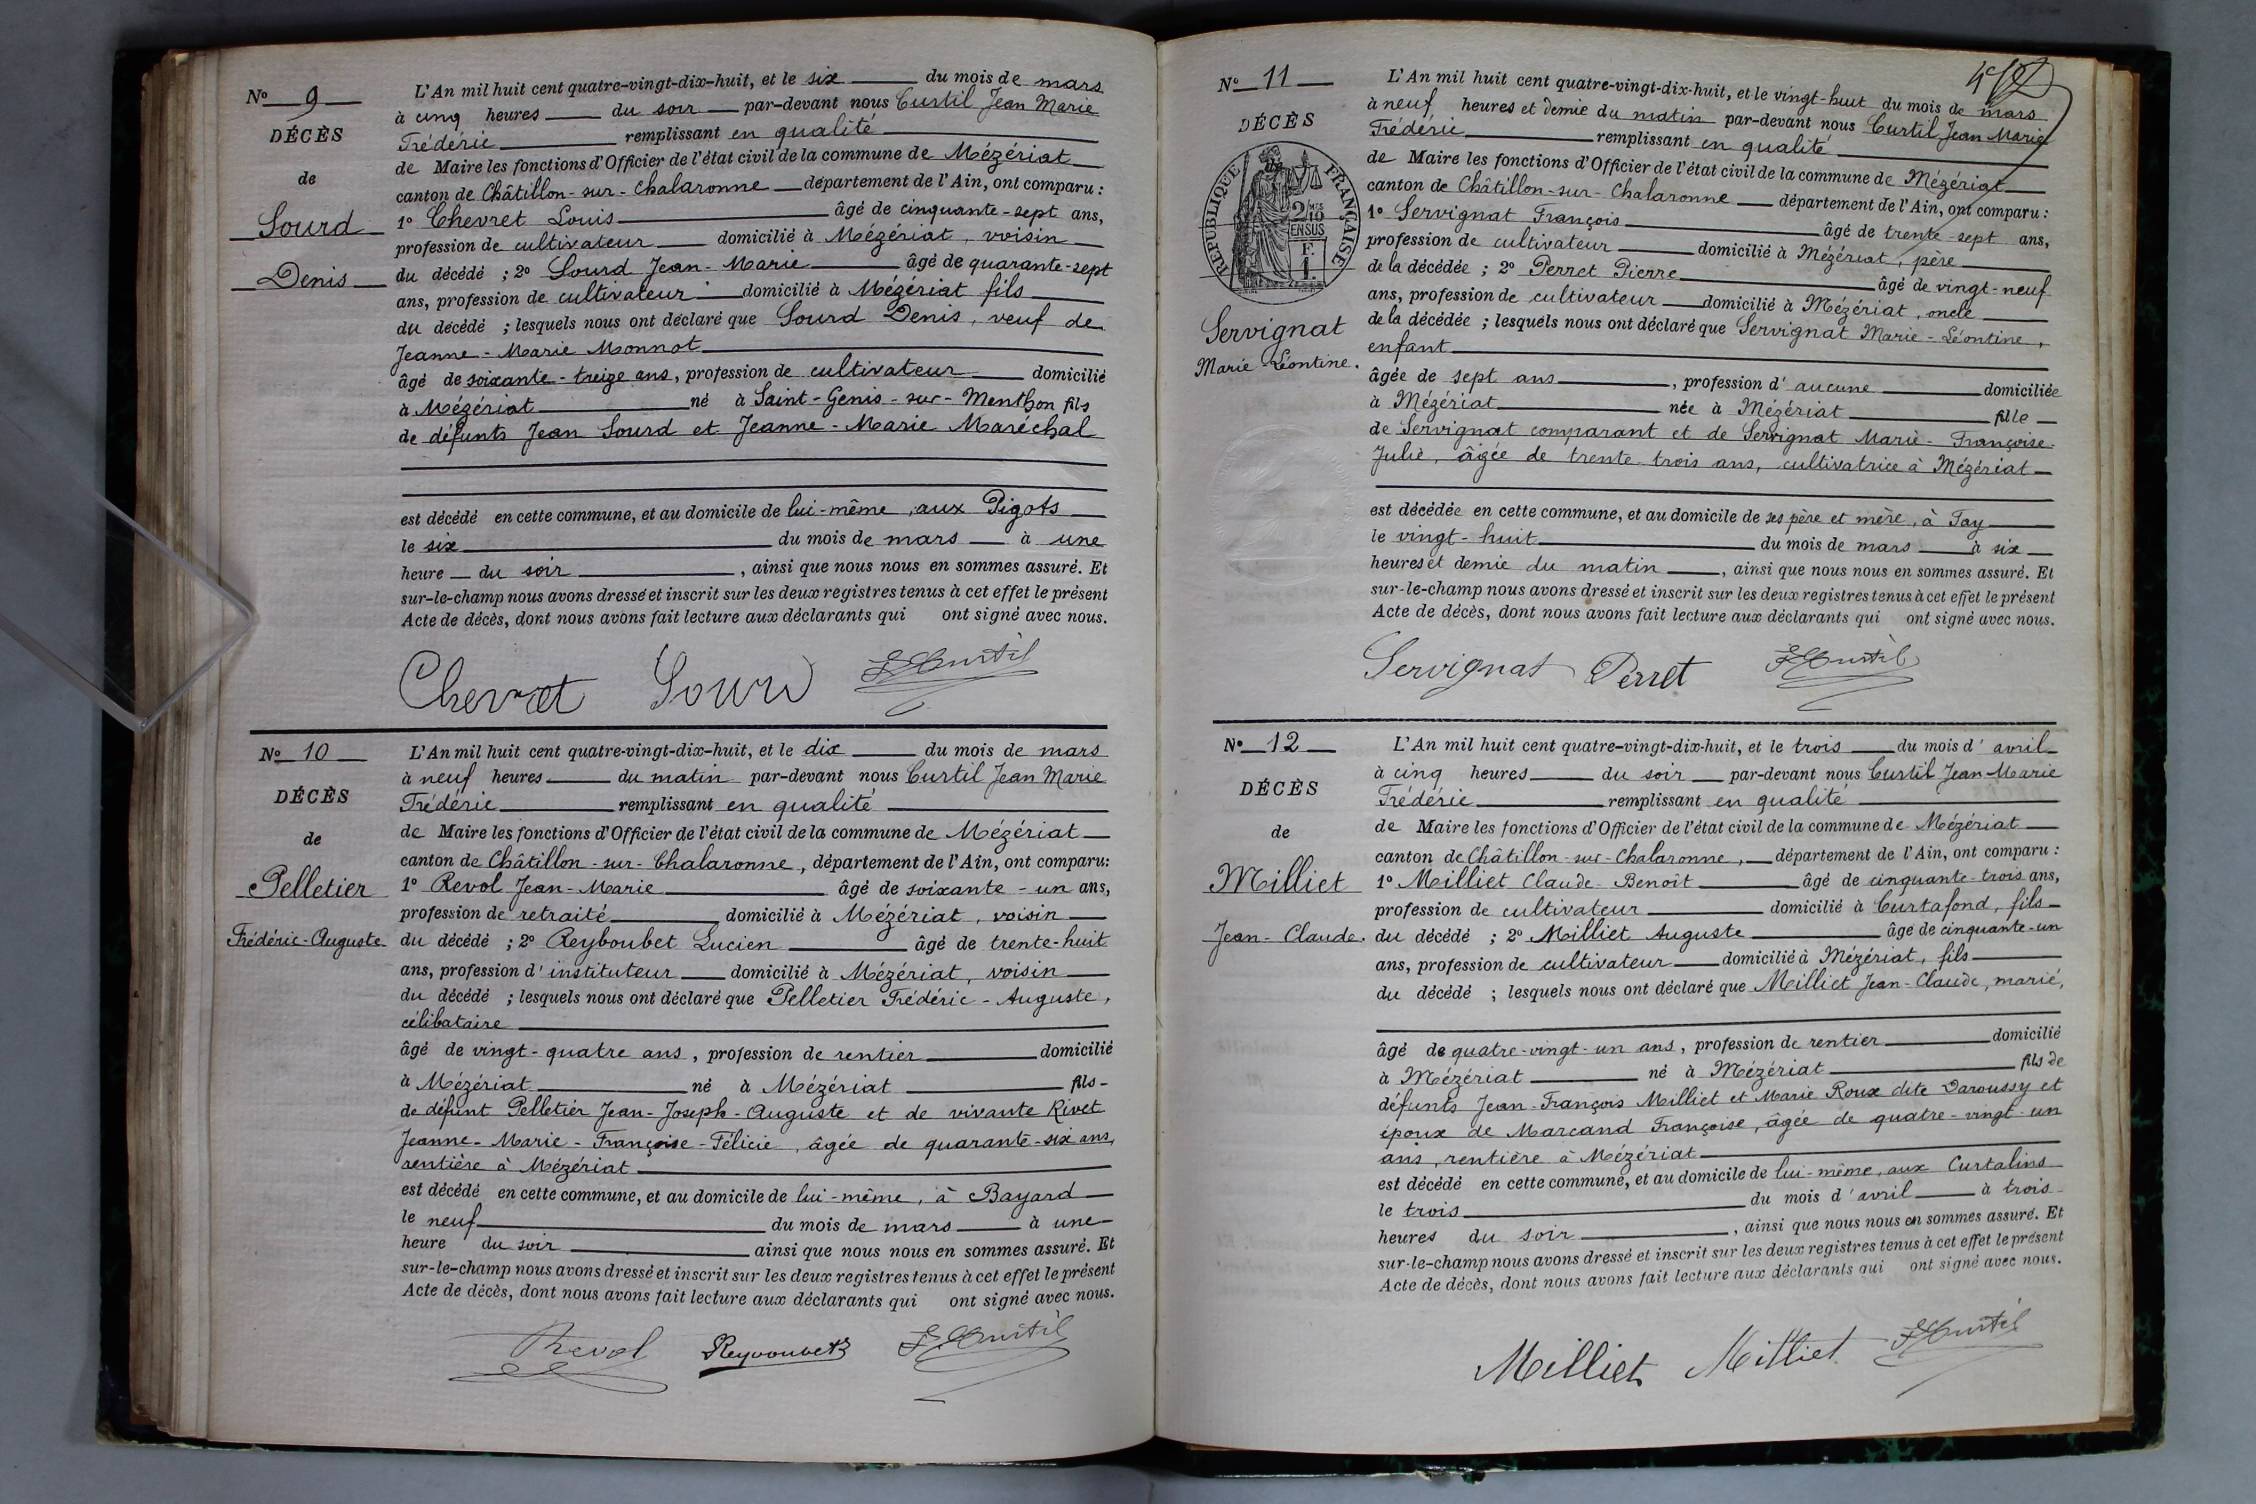 N° 9
DÉCÈS
de
Sourd
Denis
L'An mil huit cent quatre-vingt-dix-huit, et le six du mois de mars
à cinq heures du soir par-devant nous Curtil Jean Marie
Frédéric remplissant en qualité
de Maire les fonctions d'Officier de l'état civil de la commune de Mézériat
canton de Châtillon-sur-Chalaronne département de l'Ain, ont comparu :
1° Chevret Louis âgé de cinquante-sept ans,
profession de cultivateur domicilié à Mézériat, voisin
du décédé ; 2° Sourd Jean-Marie âgé de quarante-sept
ans, profession de cultivateur domicilié à Mézériat fils
du décédé ; lesquels nous ont déclaré que Sourd Denis, veuf de
Jeanne-Marie Monnot
âgé de soixante-treize ans, profession de cultivateur domicilié
à Mézériat né à Saint-Genis-sur-Menthon fils
de défunts Jean Sourd et Jeanne-Marie Maréchal
est décédé en cette commune, et au domicile de lui-même, aux Pigots
le six du mois de mars à une
heure du soir, ainsi que nous nous en sommes assuré. Et
sur-le-champ nous avons dressé et inscrit sur les deux registres tenus à cet effet le présent
Acte de décès, dont nous avons fait lecture aux déclarants qui ont signé avec nous.
Chevret Sourd F. Curtil
N° 10
DÉCÈS
de
Pelletier
Frédéric-Auguste
L'An mil huit cent quatre-vingt-dix-huit, et le dix du mois de mars
à neuf heures du matin par-devant nous Curtil Jean Marie
Frédéric remplissant en qualité
de Maire les fonctions d'Officier de l'état civil de la commune de Mézériat
canton de Châtillon-sur-Chalaronne, département de l'Ain, ont comparu:
1° Revol Jean-Marie âgé de soixante-un ans,
profession de retraité domicilié à Mézériat, voisin
du décédé ; 2° Reyboubet Lucien âgé de trente-huit
ans, profession d'instituteur domicilié à Mézériat, voisin
du décédé ; lesquels nous ont déclaré que Pelletier Frédéric-Auguste,
célibataire
âgé de vingt-quatre ans, profession de rentier domicilié
à Mézériat né à Mézériat fils
de défunt Pelletier Jean-Joseph-Auguste et de vivante Rivet
Jeanne-Marie-Françoise-Félicie, âgée de quarante-six ans,
rentière à Mézériat
est décédé en cette commune, et au domicile de lui-même, à Bayard
le neuf du mois de mars à une
heure du soir ainsi que nous nous en sommes assuré. Et
sur-le-champ nous avons dressé et inscrit sur les deux registres tenus à cet effet le présent
Acte de décès, dont nous avons fait lecture aux déclarants qui ont signé avec nous.
Revol F. Curtil
N° 11
DÉCÈS
RÉPUBLIQUE FRANÇAISE
2/10
EN SUS
F.
1.
Servignat
Marie-Léontine.
L'An mil huit cent quatre-vingt-dix-huit, et le vingt-huit du mois de mars
à neuf heures et demie du matin par-devant nous Curtil Jean Marie
Frédéric remplissant en qualité
de Maire les fonctions d'Officier de l'état civil de la commune de Mézériat
canton de Châtillon-sur-Chalaronne département de l'Ain, ont comparu :
1° Servignat François âgé de trente-sept ans,
profession de cultivateur domicilié à Mézériat, père
de la décédée ; 2° Perret Pierre âgé de vingt-neuf
ans, profession de cultivateur domicilié à Mézériat, oncle
de la décédée ; lesquels nous ont déclaré que Servignat Marie-Léontine,
enfant
âgée de sept ans, profession d'aucune domiciliée
à Mézériat née à Mézériat fille
de Servignat comparant et de Servignat Marie-Françoise-
Julie, âgée de trente-trois ans, cultivatrice à Mézériat
est décédée en cette commune, et au domicile de ses père et mère, à Tay
le vingt-huit du mois de mars à six
heures et demie du matin, ainsi que nous nous en sommes assuré. Et
sur-le-champ nous avons dressé et inscrit sur les deux registres tenus à cet effet le présent
Acte de décès, dont nous avons fait lecture aux déclarants qui ont signé avec nous.
Servignat Perret F. Curtil
N° 12
DÉCÈS
de
Milliet
Jean-Claude.
L'An mil huit cent quatre-vingt-dix-huit, et le trois du mois d'avril
à cinq heures du soir par-devant nous Curtil Jean-Marie
Frédéric remplissant en qualité
de Maire les fonctions d'Officier de l'état civil de la commune de Mézériat
canton de Châtillon-sur-Chalaronne, département de l'Ain, ont comparu :
1° Milliet Claude-Benoît âgé de cinquante-trois ans,
profession de cultivateur domicilié à Curtafond, fils
du décédé ; 2° Milliet Auguste âgé de cinquante-un
ans, profession de cultivateur domicilié à Mézériat, fils
du décédé ; lesquels nous ont déclaré que Milliet Jean-Claude, marié,
âgé de quatre-vingt-un ans, profession de rentier domicilié
à Mézériat né à Mézériat fils de
défunts Jean-François Milliet et Marie Roux dite Daroussy et
époux de Marcand Françoise, âgée de quatre-vingt-un
ans, rentière à Mézériat
est décédé en cette commune, et au domicile de lui-même, aux Curtalins
le trois du mois d'avril à trois
heures du soir, ainsi que nous nous en sommes assuré. Et
sur-le-champ nous avons dressé et inscrit sur les deux registres tenus à cet effet le présent
Acte de décès, dont nous avons fait lecture aux déclarants qui ont signé avec nous.
Milliet Milliet F. Curtil